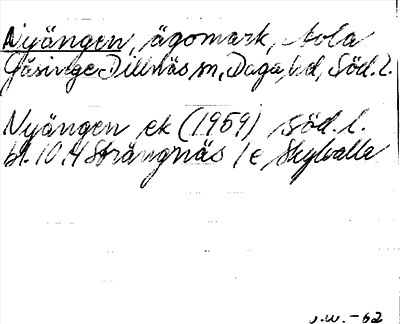 Nyängen, ägomark, Aola
Gåsinge-Dillnäs sn, Daga hd, Söd.l.
Nyängen ek (1959) Söd.l.
bl. 10 H Strängnäs 1 e Skylvalla
J.W. -62